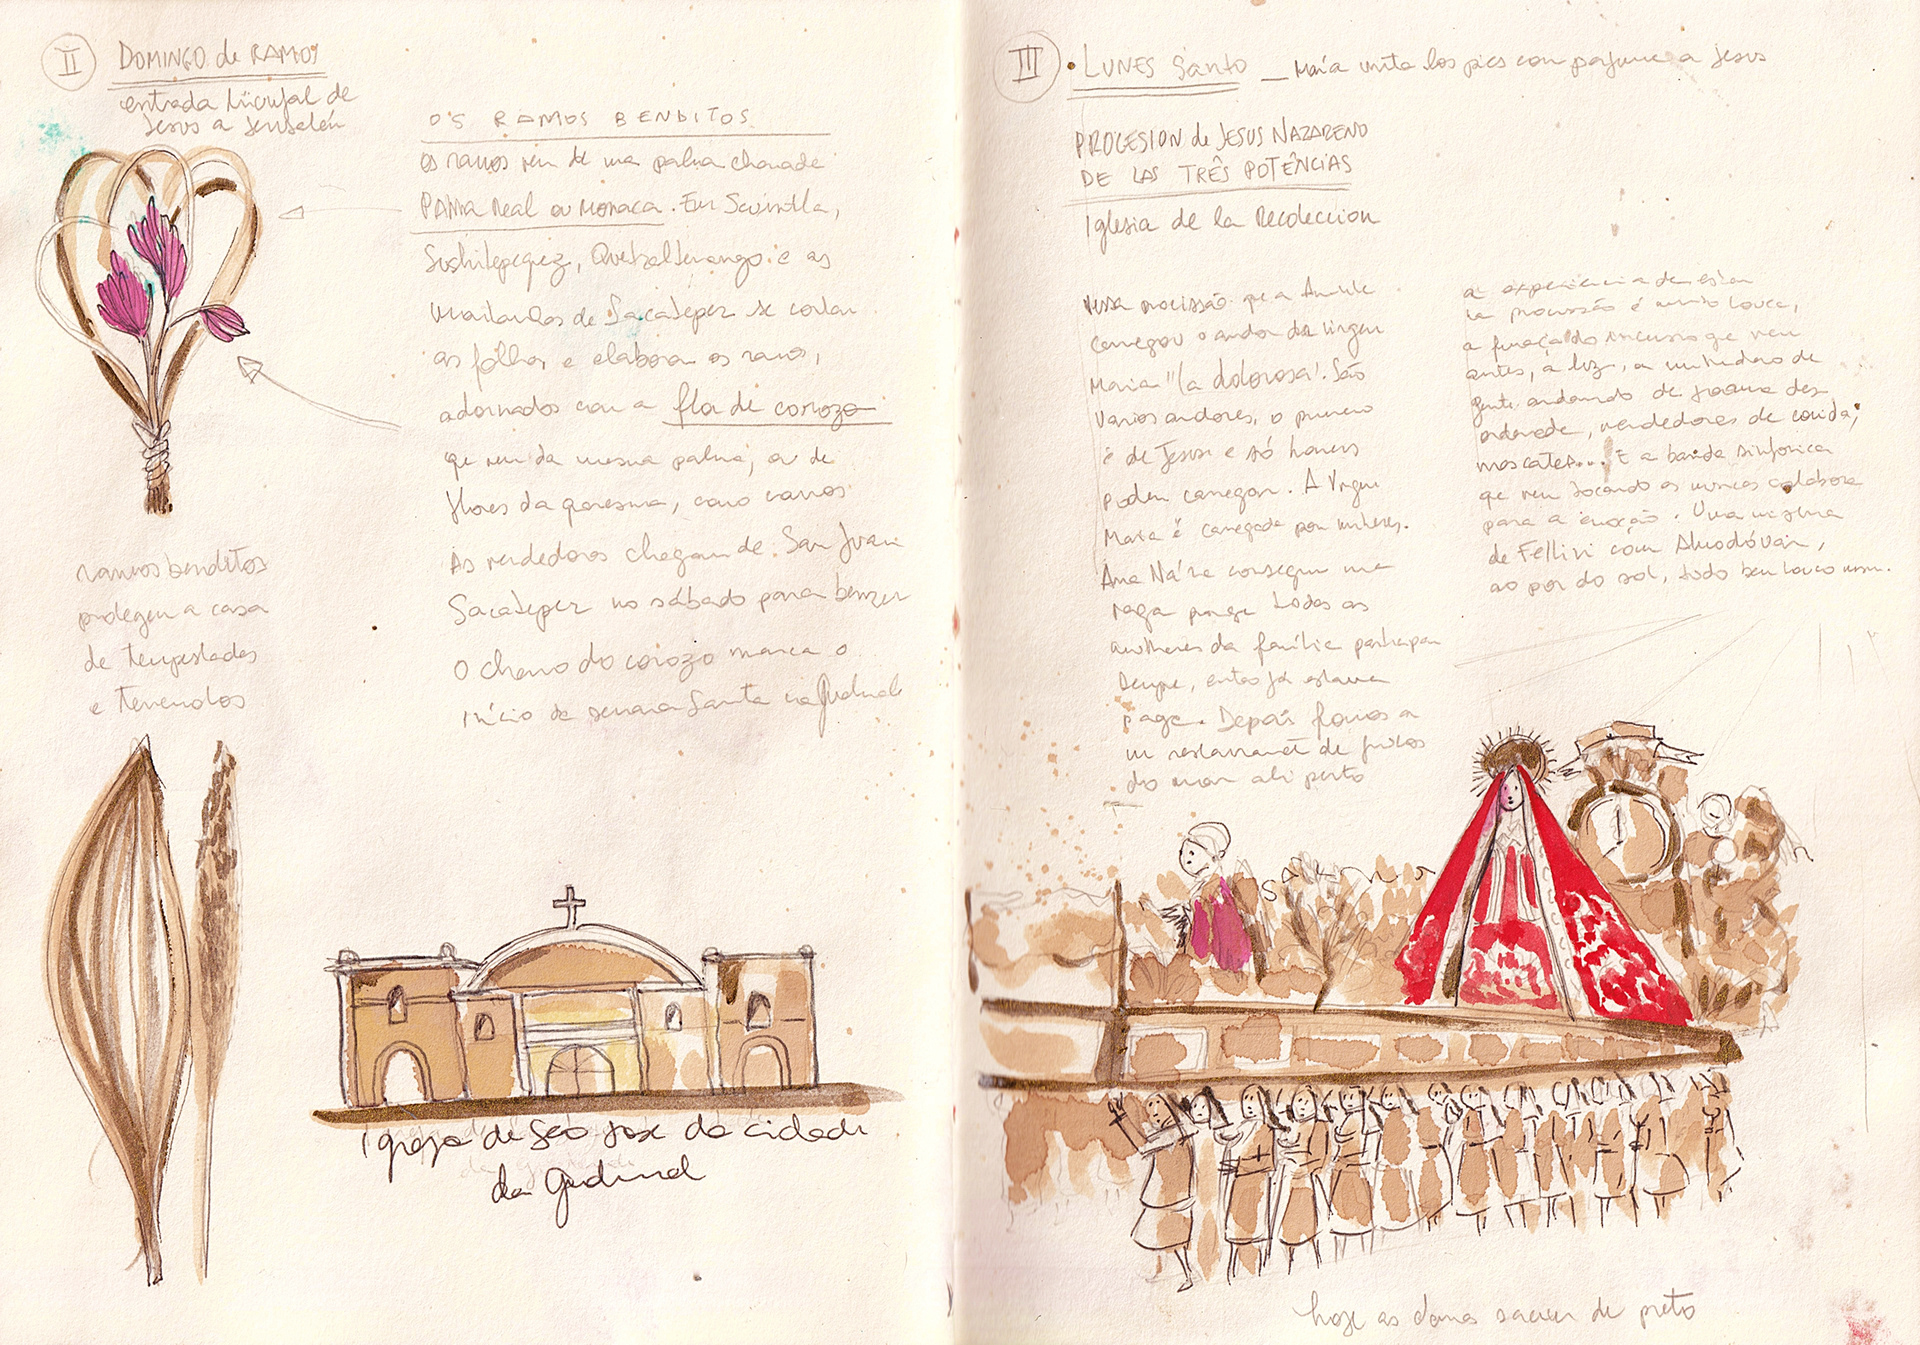 II
DOMINGO de RAMOS
entrada triunfal de
Jesus a Jerusalén
OS RAMOS BENDITOS
os ramos vem de uma palma chamada
PALMA Real ou MANACA. Em Scuintla,
Suchitepequez, Quetzaltenango e as
de Sacatepez se cortam
as folhas e elaboram os ramos,
adornados com a flor de corozo
que vem da mesma palma, ou de
flores da quaresma, como
As vendedoras chegam de San Juan
Sacatepez no sábado para benzer
O cheiro do corozo marca o
início da semana Santa na
ramos benditos
protegem a casa
de tempestades
e terremotos
Igreja de São José da cidade
da
III
• LUNES Santo _ María unta los pies con perfume a Jesus
PROCESION de JESUS NAZARENO
DE LAS TRÊS POTÊNCIAS
Iglesia de la Recoleccion
nessa procissão que a
carregou o andor da Virgem
Maria "la dolorosa". São
varios andores, o primeiro
é de Jesus e só homens
podem carregar. A Virgem
Maria é carregada por mulheres.
Ana conseguiu uma
vaga porque todas as
mulheres da família participam
sempre, então já estava
paga. Depois fomos a
um restaurante de frutos
do mar ali perto
a experiencia de estar
na procissão é muito louca,
a fumaça do incenso que vem
antes, a luz, a multidão de
gente andando de forma des-
ordenada, vendedores de comida,
mascates... E a banda sinfonica
que vem tocando as músicas colabora
para a emoção. Uma mistura
de Fellini com Almodóvar,
ao por do sol, tudo bem louco mesmo.
hoje as damas saem de preto